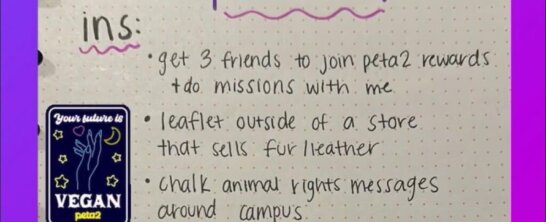 ins:
• get 3 friends to join peta2 rewards
+ do missions with me
• leaflet outside of a store
that sells fur/leather
• chalk animal rights messages
around campus
Your future is
VEGAN
peta2